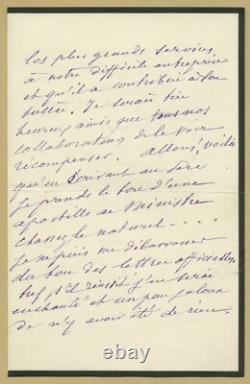 les plus grands services
à notre difficile entreprise
et qu'il a contribué à son
succès. Je serais très
heureux ainsi que tous nos
collaborateurs de le voir
récompenser. Allons! voilà
qu'en écrivant au
je prends le ton d'une
apostille au Ministre
chassez le naturel . . . .
je ne puis me débarrasser
du ton des lettres officielles
bref, s'il réussit j'en serai
enchanté et un peu jaloux
de n'y avoir été de rien